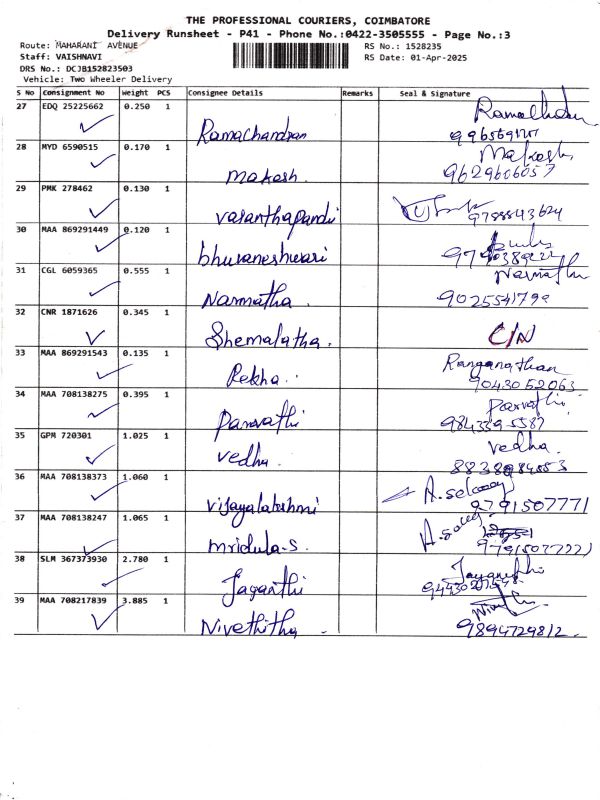 THE PROFESSIONAL COURIERS, COIMBATORE
Delivery Runsheet - P41 - Phone No.:0422-3505555 - Page No.:3
Route: MAHARANI AVENUE RS No.: 1528235
Staff: VAISHNAVI RS Date: 01-Apr-2025
DRS No.: DCJB152823503
Vehicle: Two Wheeler Delivery
S No Consignment No Weight PCS Consignee Details Remarks Seal & Signature
27 EDQ 25225662 0.250 1
Ramachandran
28 MYD 6590515 0.170 1 Makesh
makesh. 9629606057
29 PMK 278462 0.130 1
vasanthapandi
30 MAA 869291449 0.120 1
bhuvaneshwari
31 CGL 6059365 0.555 1
Narmatha. 9025541799
32 CNR 1871626 0.345 1
Shemalatha. C/N
33 MAA 869291543 0.135 1 Ranganathan
Rekha. 9043052063
34 MAA 708138275 0.395 1 Parvathi
Parvathi
35 GPM 720301 1.025 1 vedha.
vedha.
36 MAA 708138373 1.060 1
vijayalakshmi 9791507771
37 MAA 708138247 1.065 1
mridula.s.
38 SLM 367373930 2.780 1
Jayanthi
39 MAA 708217839 3.885 1
Nivethitha 9894729812.